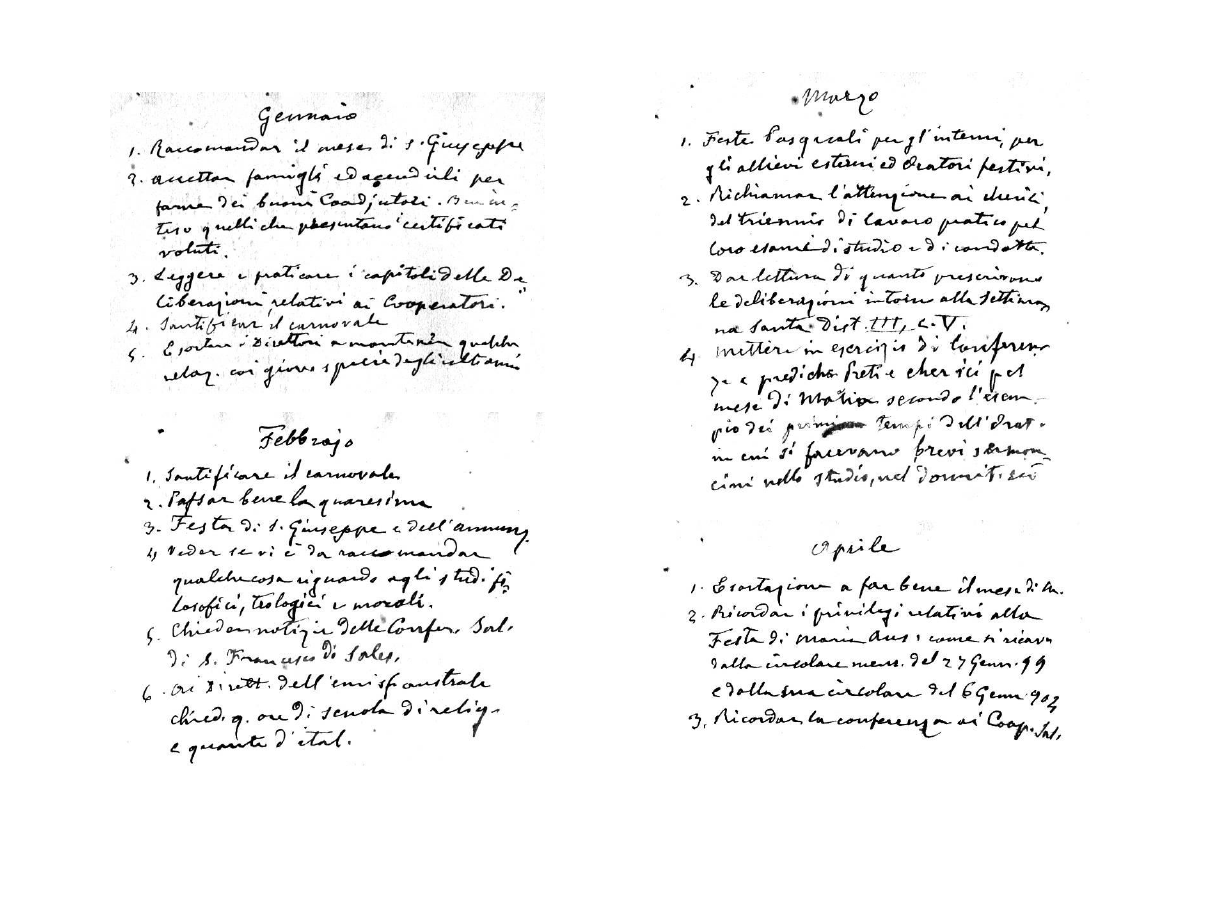 Gennaio
1. Raccomandar il mese di S. Giuseppe
2. accettar famigli ed accudirli per
farne dei buoni Coadjutori. Ben in-
teso quelli che presentano i certificati
voluti.
3. Leggere e praticare i capitoli delle De-
liberazioni, relativi ai Cooperatori.
4. Santificar il carnovale
5. Esortar i Direttori a mantener qualche
relaz. coi giovs specie degli ult anni
Febbrajo
1. Santificare il carnovale
2. Passar bene la quaresima
3. Festa di S. Giuseppe e dell'annunz.
4. Veder se vi è da raccomandar
qualche cosa riguardo agli studi fi-
losofici, teologici e morali.
5. Chieder notizie delle Confer. Sal.
di S. Francesco di Sales.
6. Ai Dirett. dell'emisf australe
chied. q. ore di scuola di relig.
e quante d'ital.
Marzo
1. Feste Pasquali per gl'interni, per
gli allievi esterni ed Oratori festivi,
2. Richiamar l'attenzione ai chierici
del triennio di lavoro pratico pel
loro esame di studio e di condotta.
3. Dar lettura di quanto prescrivono
le deliberazioni intorno alla Settima-
na Santa Dist. III, c. V.
4. Mettere in esercizio di Conferen-
ze e prediche Preti e cherici pel
mese di Maria secondo l'esem-
pio dei primi tempi dell'Orat.
in cui si facevano brevi sermon-
cini nello studio, nel dormit. ecc
Aprile
1. Esortazione a far bene il mese di M.
2. Ricordar i privilegi relativi alla
Festa di Maria Aus: come si ricava
dalla circolare mens. del 27 Genn. 99
e dalla sua circolare del 6 Genn 902
3. Ricordar la conferenza ai Coop. Sal.